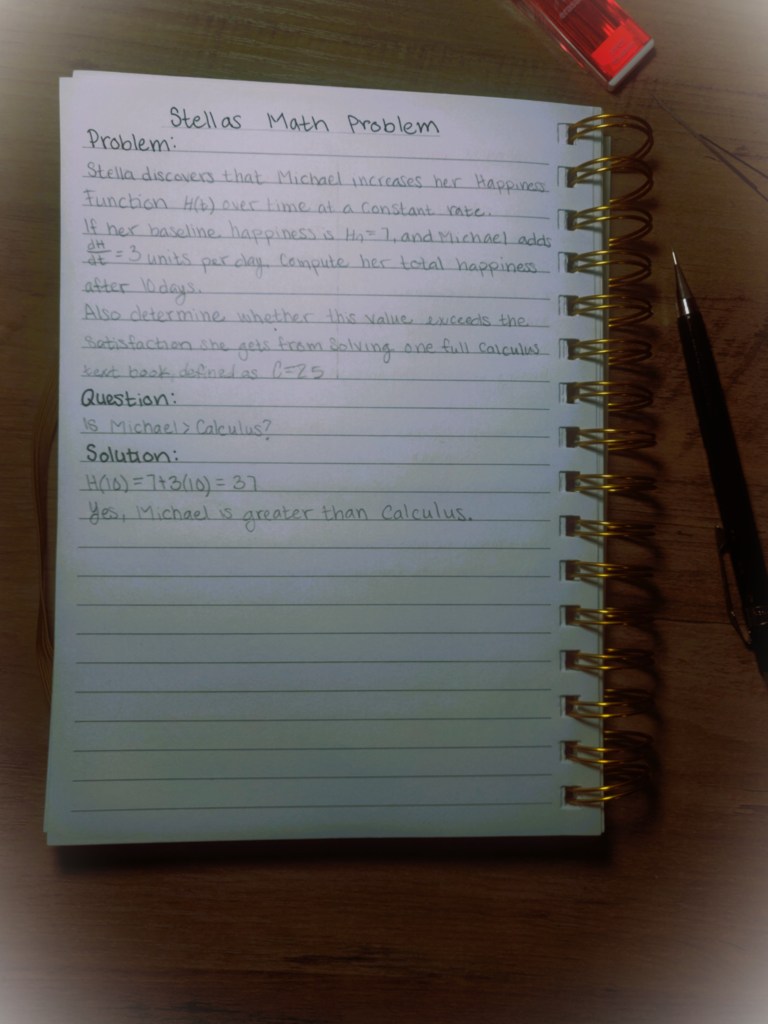 Stellas Math Problem
Problem:
Stella discovers that Michael increases her Happiness
Function H(t) over time at a constant rate.
If her baseline happiness is H₀=7, and Michael adds
dH/dt = 3 units per day. Compute her total happiness
after 10 days.
Also determine whether this value exceeds the
satisfaction she gets from solving one full calculus
text book, defined as C=25
Question:
Is Michael > Calculus?
Solution:
H(10) = 7+3(10) = 37
Yes, Michael is greater than Calculus.